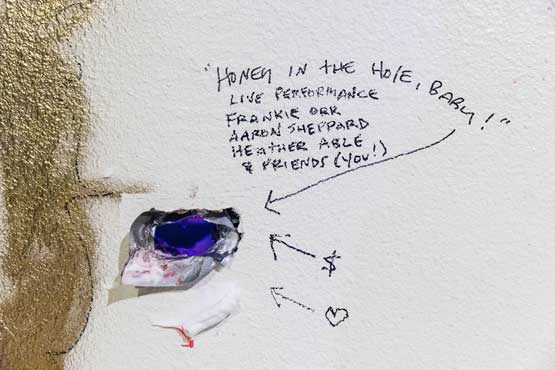 "HONEY IN THE HOLE, BABY!"
LIVE PERFORMANCE
FRANKIE ORR
AARON SHEPPARD
HEATHER ABLE
& FRIENDS (YOU!)
$
♡